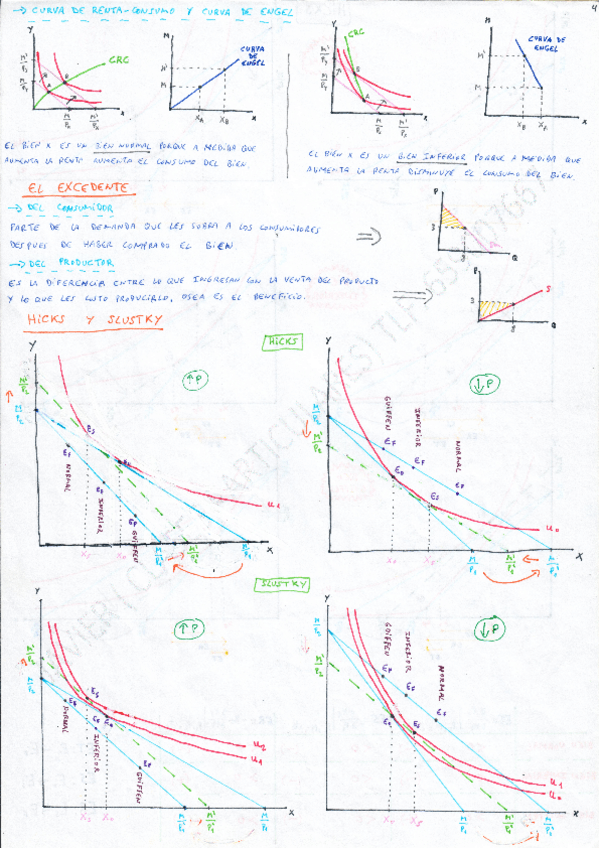 4
→ CURVA DE RENTA-CONSUMO Y CURVA DE ENGEL
Y
CRC
X
M
CURVA DE
ENGEL
M'
M
X_A
X_B
X
Y
CRC
X
M
CURVA DE
ENGEL
M'
M
X_B
X_A
X
EL BIEN X ES UN BIEN NORMAL PORQUE A MEDIDA QUE
AUMENTA LA RENTA AUMENTA EL CONSUMO DEL BIEN.
EL BIEN X ES UN BIEN INFERIOR PORQUE A MEDIDA QUE
AUMENTA LA RENTA DISMINUYE EL CONSUMO DEL BIEN.
EL EXCEDENTE
→ DEL CONSUMIDOR
PARTE DE LA DEMANDA QUE LES SOBRA A LOS CONSUMIDORES
DESPUES DE HABER COMPRADO EL BIEN.
⇒
P
3
Q
→ DEL PRODUCTOR
ES LA DIFERENCIA ENTRE LO QUE INGRESAN CON LA VENTA DEL PRODUCTO
Y LO QUE LES COSTO PRODUCIRLO, OSEA ES EL BENEFICIO.
⇒
P
3
S
Q
HICKS Y SLUSTKY
HICKS
Y
↑P
E_S
E_0
E_F
NORMAL
E_F
INFERIOR
E_F
GIFFEN
U_1
X_S
X_0
X
Y
↓P
GIFFEN
INFERIOR
NORMAL
E_F
E_F
E_F
E_0
E_S
U_0
X_0
X_S
X
SLUSTKY
Y
↑P
E_S
E_0
NORMAL
E_F
INFERIOR
E_F
GIFFEN
U_2
U_1
X_S
X_0
X
Y
↓P
GIFFEN
INFERIOR
NORMAL
E_F
E_F
E_F
E_0
E_S
U_1
U_0
X_0
X_S
X